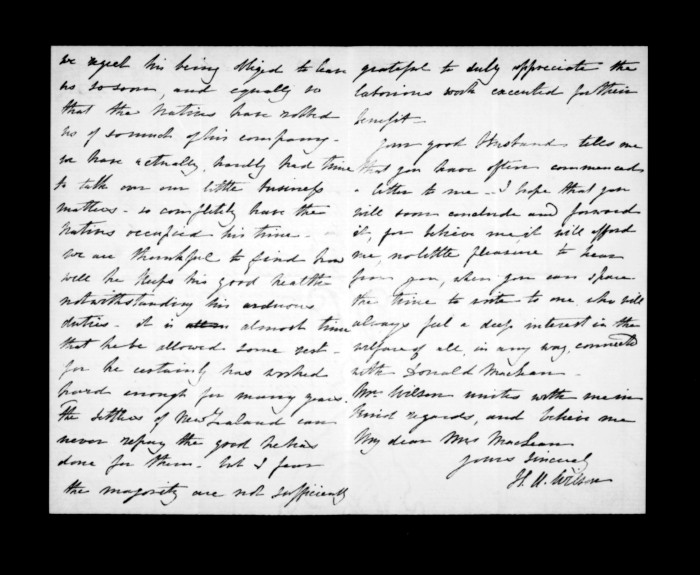 we regret his being obliged to leave
us so soon, and equally so
that the Natives have robbed
us of so much of his company -
we have actually, hardly had time
to talk over our little business
matters - so completely have the
Natives occupied his time -
we are thankful to find how
well he keeps his good health
notwithstanding his arduous
duties - it is almost time
that he be allowed some rest -
for he certainly has worked
hard enough for many years.
The settlers of New Zealand can
never repay the good he has
done for them - but I fear
the majority are not sufficiently
grateful to duly appreciate the
laborious work executed for their
benefit -
Your good Husband tells me
that you have often commenced
a letter to me - I hope that you
will soon conclude and forward
it, for believe me, it will afford
me, no little pleasure to hear
from you, when you can spare
the time to write to one, who will
always feel a deep interest in the
welfare of all, in any way, connected
with Donald MacLean -
Mr Wilson unites with me in
kind regards, and believe me
My dear Mrs MacLean
Yours sincerely
Wilson